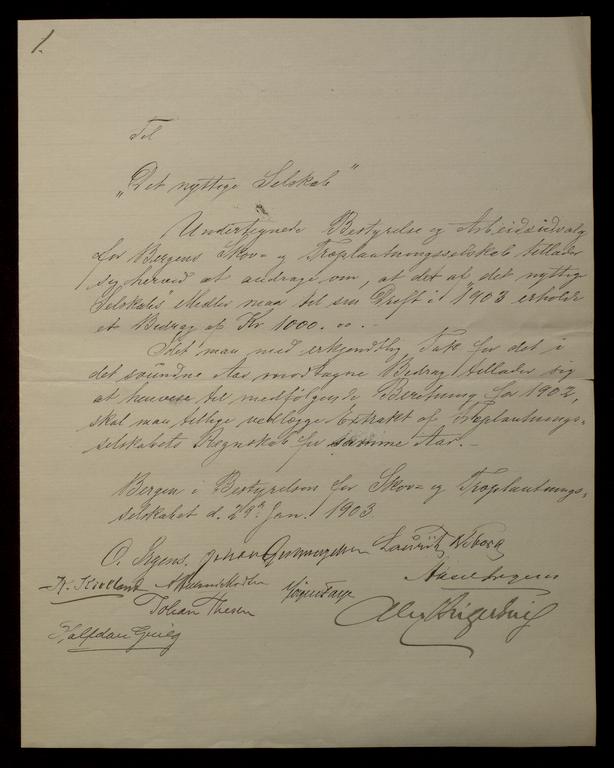 1.
Til
„Det nyttige Selskab"
Undertegnede Bestyrelse og Arbeidsudvalg
for Bergens Skov= og Træplantningsselskab tillader
sig herved at andrage om, at det af „det nyttige
Selskabs" Midler maa til sin Drift i 1903 erholde
et Bidrag af Kr 1000. 00. –
Idet man med erkjendtlig Tak for det i
det svundne Aar modtagne Bidrag tillader sig
at henvise til medfølgende Beretning for 1902,
skal man tillige vedlægge Extrakt af Træplantnings=
selskabets Regnskab for samme Aar. –
Bergen i Bestyrelsen for Skov= og Træplantnings=
selskabet d. 29de Jan. 1903
O. Irgens. Johan
Johan Thesen Jørgen Faye
Halfdan Grieg